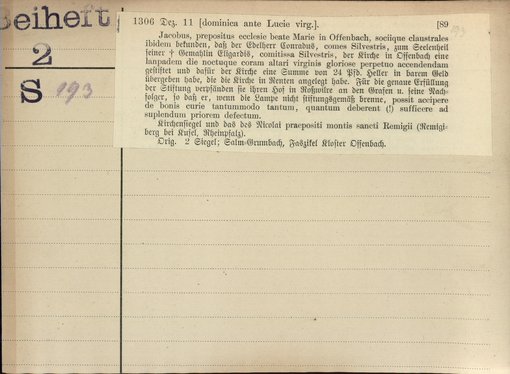 Beiheft
2
S 193
1306 Dez. 11 [dominica ante Lucie virg.]. [89
193
Jacobus, prepositus ecclesie beate Marie in Offenbach, sociique claustrales
ibidem bekunden, daß der Edelherr Conradus, comes Silvestris, zum Seelenheil
seiner † Gemahlin Eligardis, comitissa Silvestris, der Kirche in Offenbach eine
lanpadem die noctuque coram altari virginis gloriose perpetuo accendendam
gestiftet und dafür der Kirche eine Summe von 24 Pfd. Heller in barem Geld
übergeben habe, die die Kirche in Renten angelegt habe. Für die genaue Erfüllung
der Stiftung verpfänden sie ihren Hof in Roßwilre an den Grafen u. seine Nach-
folger, so daß er, wenn die Lampe nicht stiftungsgemäß brenne, possit accipere
de bonis curie tantummodo tantum, quantum deberent (!) sufficere ad
suplendum priorem defectum.
Kirchensiegel und das des Nicolai praepositi montis sancti Remigii (Remigi-
berg bei Kusel, Rheinpfalz).
Orig. 2 Siegel; Salm-Grumbach, Faszikel Kloster Offenbach.